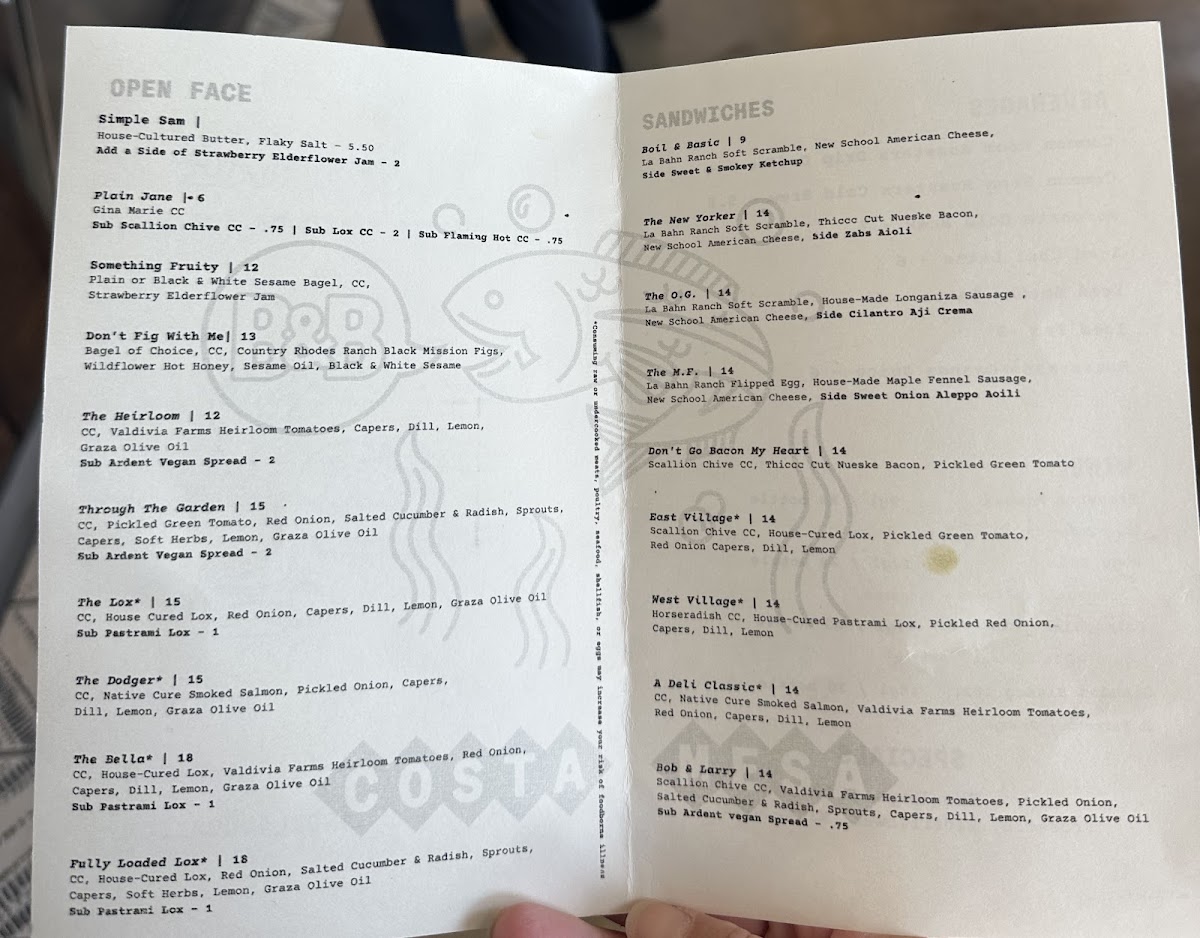 OPEN FACE
Simple Sam |
House-Cultured Butter, Flaky Salt - 5.50
Add a Side of Strawberry Elderflower Jam - 2
Plain Jane |- 6
Gina Marie CC
Sub Scallion Chive CC - .75 | Sub Lox CC - 2 | Sub Flaming Hot CC - .75
Something Fruity | 12
Plain or Black & White Sesame Bagel, CC,
Strawberry Elderflower Jam
Don't Fig With Me| 13
Bagel of Choice, CC, Country Rhodes Ranch Black Mission Figs,
Wildflower Hot Honey, Sesame Oil, Black & White Sesame
The Heirloom | 12
CC, Valdivia Farms Heirloom Tomatoes, Capers, Dill, Lemon,
Graza Olive Oil
Sub Ardent Vegan Spread - 2
Through The Garden | 15
CC, Pickled Green Tomato, Red Onion, Salted Cucumber & Radish, Sprouts,
Capers, Soft Herbs, Lemon, Graza Olive Oil
Sub Ardent Vegan Spread - 2
The Lox* | 15
CC, House Cured Lox, Red Onion, Capers, Dill, Lemon, Graza Olive Oil
Sub Pastrami Lox - 1
The Dodger* | 15
CC, Native Cure Smoked Salmon, Pickled Onion, Capers,
Dill, Lemon, Graza Olive Oil
The Bella* | 18
CC, House-Cured Lox, Valdivia Farms Heirloom Tomatoes, Red Onion,
Capers, Dill, Lemon, Graza Olive Oil
Sub Pastrami Lox - 1
Fully Loaded Lox* | 18
CC, House-Cured Lox, Red Onion, Salted Cucumber & Radish, Sprouts,
Capers, Soft Herbs, Lemon, Graza Olive Oil
Sub Pastrami Lox - 1
B&B
COSTA MESA
*Consuming raw or undercooked meats, poultry, seafood, shellfish, or eggs may increase your risk of foodborne illness
SANDWICHES
Boil & Basic | 9
La Bahn Ranch Soft Scramble, New School American Cheese,
Side Sweet & Smokey Ketchup
The New Yorker | 14
La Bahn Ranch Soft Scramble, Thiccc Cut Nueske Bacon,
New School American Cheese, Side Zabs Aioli
The O.G. | 14
La Bahn Ranch Soft Scramble, House-Made Longaniza Sausage ,
New School American Cheese, Side Cilantro Aji Crema
The M.F. | 14
La Bahn Ranch Flipped Egg, House-Made Maple Fennel Sausage,
New School American Cheese, Side Sweet Onion Aleppo Aoili
Don't Go Bacon My Heart | 14
Scallion Chive CC, Thiccc Cut Nueske Bacon, Pickled Green Tomato
East Village* | 14
Scallion Chive CC, House-Cured Lox, Pickled Green Tomato,
Red Onion Capers, Dill, Lemon
West Village* | 14
Horseradish CC, House-Cured Pastrami Lox, Pickled Red Onion,
Capers, Dill, Lemon
A Deli Classic* | 14
CC, Native Cure Smoked Salmon, Valdivia Farms Heirloom Tomatoes,
Red Onion, Capers, Dill, Lemon
Bob & Larry | 14
Scallion Chive CC, Valdivia Farms Heirloom Tomatoes, Pickled Onion,
Salted Cucumber & Radish, Sprouts, Capers, Dill, Lemon, Graza Olive Oil
Sub Ardent vegan Spread - .75